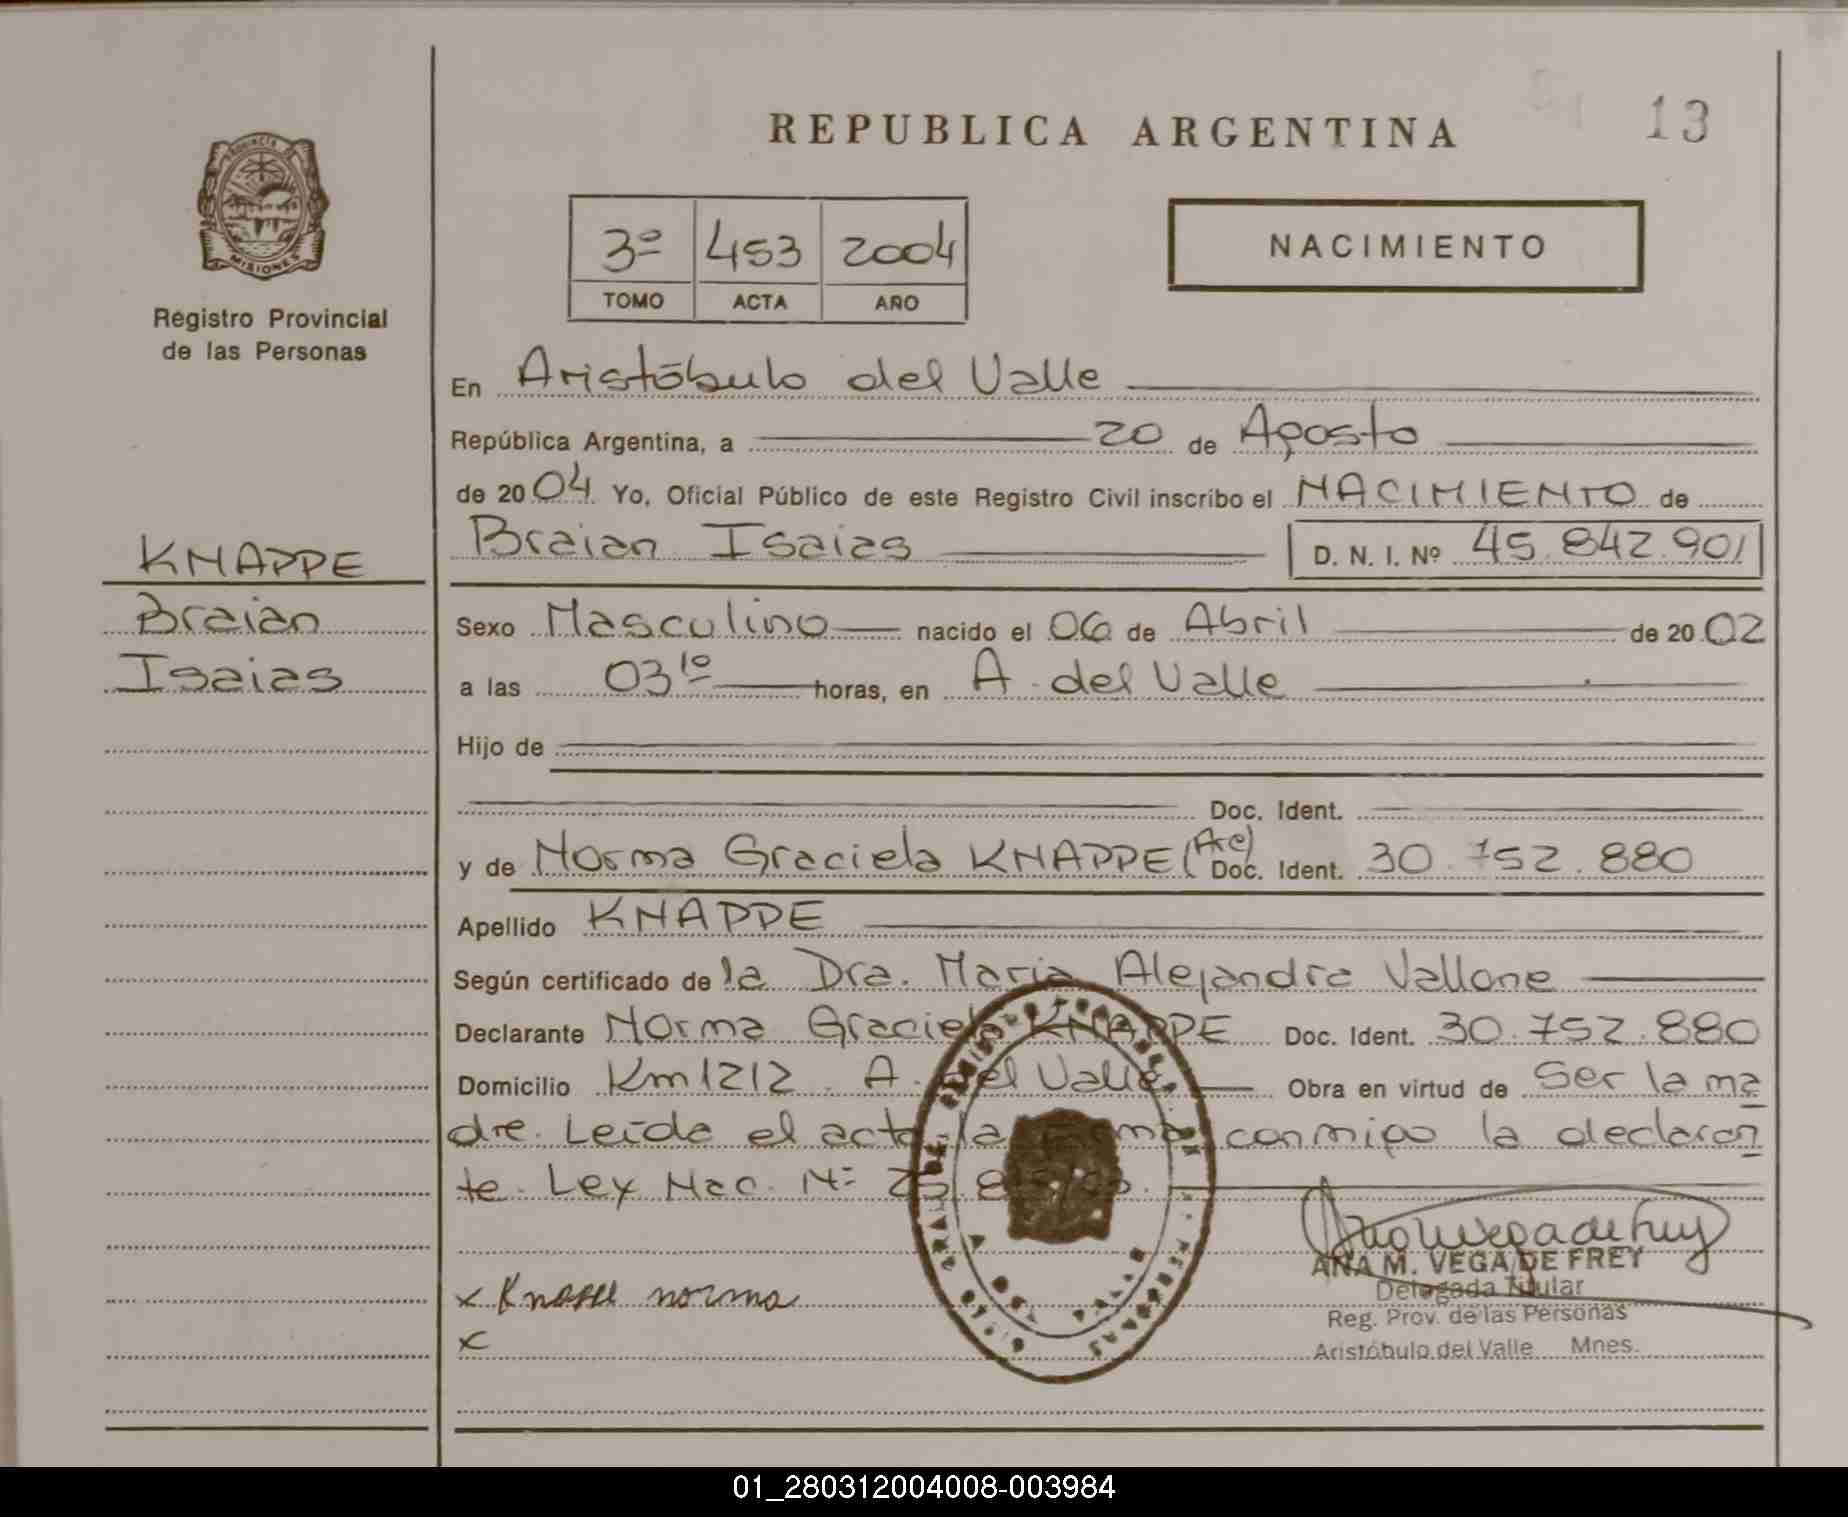 REPUBLICA ARGENTINA
13
PROVINCIA DE
MISIONES
Registro Provincial
de las Personas
3º 453 2004
TOMO ACTA AÑO
NACIMIENTO
En Aristóbulo del Valle
República Argentina, a 20 de Agosto
de 2004 Yo, Oficial Público de este Registro Civil inscribo el NACIMIENTO de
Braian Isaias D. N. I. Nº 45.842.901
KNAPPE
Braian
Isaias
Sexo Masculino nacido el 06 de Abril de 2002
a las 03 10 horas, en A. del Valle
Hijo de
Doc. Ident.
y de Norma Graciela KNAPPE (Ae) Doc. Ident. 30.752.880
Apellido KNAPPE
Según certificado de la Dra. Maria Alejandra Vallone
Declarante Norma Graciela KNAPPE Doc. Ident. 30.752.880
Domicilio Km 1212. A. del Valle Obra en virtud de Ser la ma
dre. Leída el acta la firma conmigo la declaran
te. Ley Nac. Nº
x Knappe norma
x
ANA M. VEGA DE FREY
Delegada Titular
Reg. Prov. de las Personas
Aristóbulo del Valle Mnes.
01_280312004008-003984